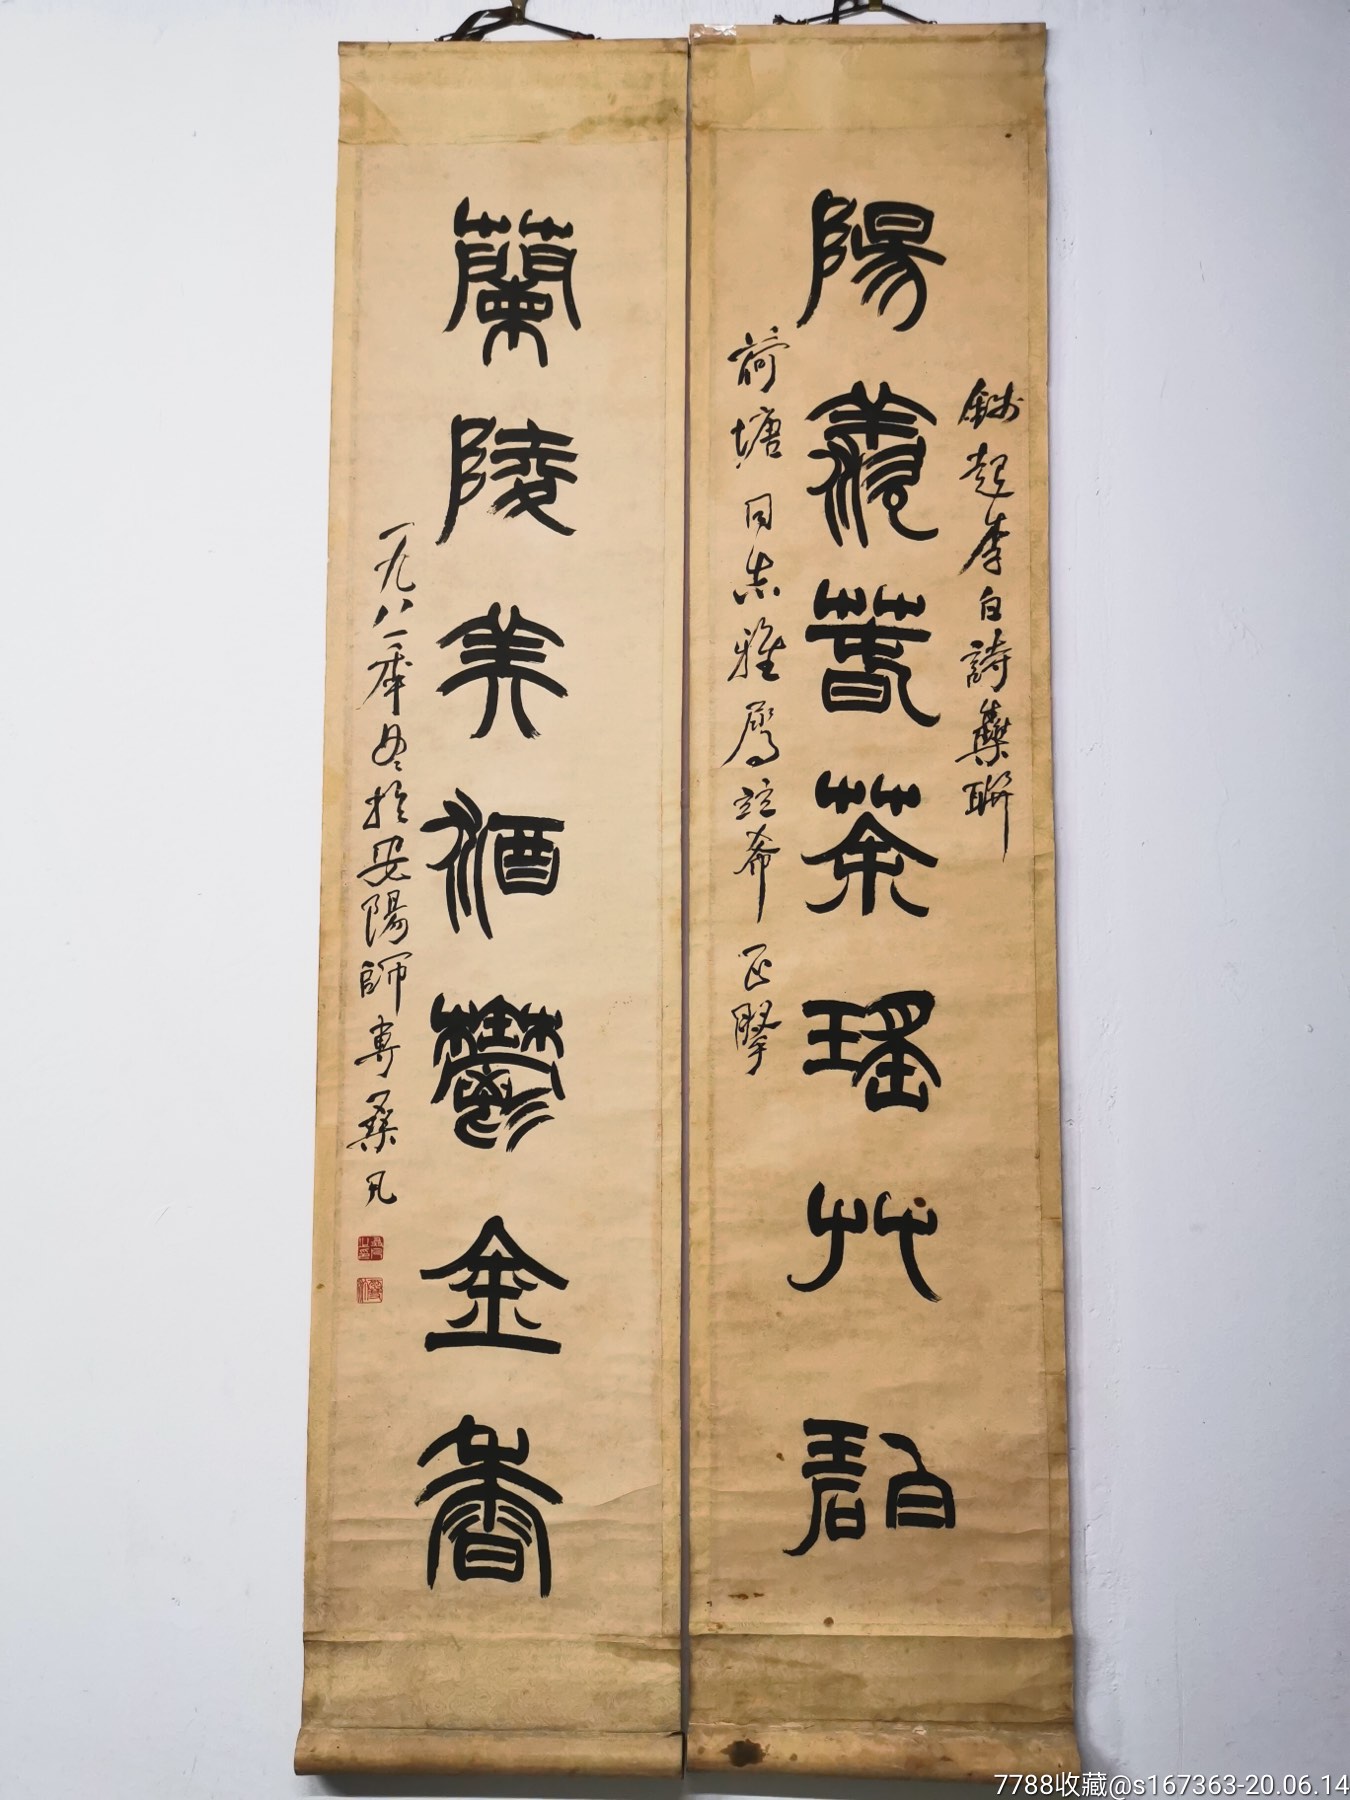 錢起李白詩集聯
陽羨春茶瑤艸碧
荷塘同志雅屬並希正
蘭陵美酒鬱金香
一九八一年冬於安陽師專桑凡
7788收藏@s167363-20.06.14